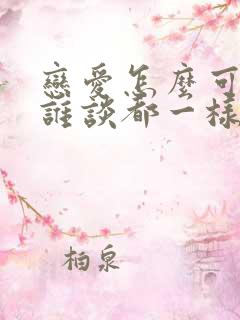 戀愛怎麼可
誰談都一樣
柏泉